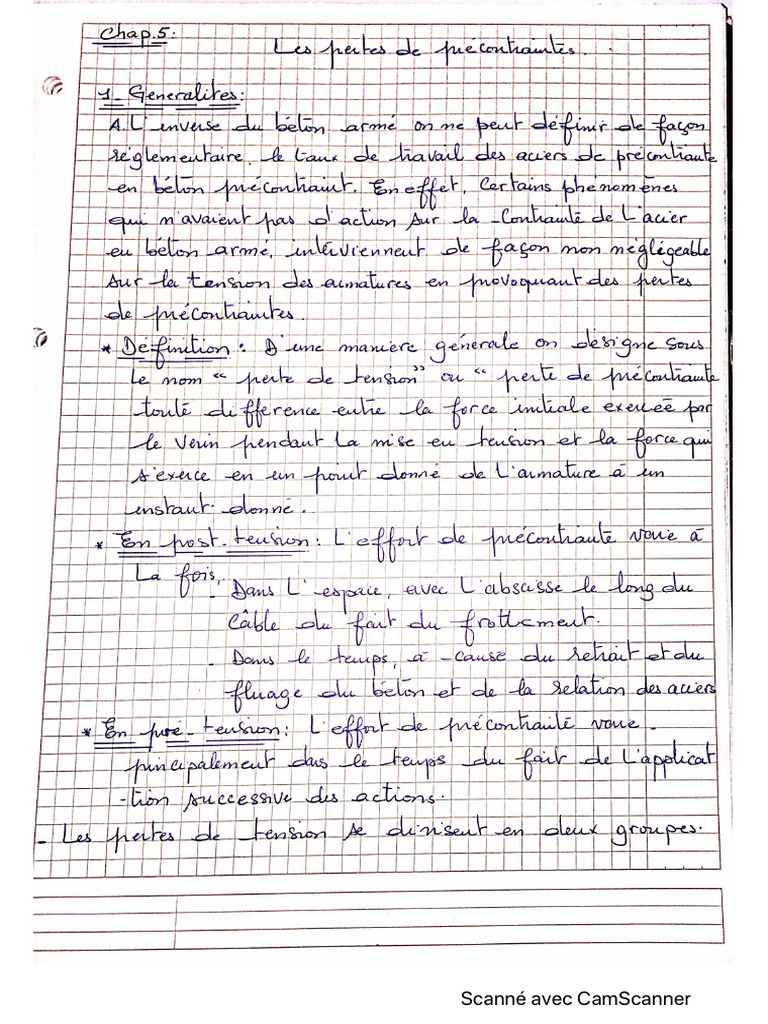 Chap.5:
Les pertes de précontraintes.
1- Generalites:
A L'inverse du béton armé on ne peut définir de façon
réglementaire, le taux de travail des aciers de précontrainte
en béton précontraint. En effet, Certains phénomènes
qui n'avaient pas d'action sur la Contrainte de L'acier
en béton armé, interviennent de façon non négligeable
sur la tension des armatures en provoquant des pertes
de précontraintes.
* Définition: D'une manière générale on désigne sous
le nom "perte de tension" ou "perte de précontrainte
toute difference entre la force initiale exercée par
le verin pendant La mise en tension et la force qui
s'exerce en un point donné de L'armature à un
instant donné.
* En post-tension: L'effort de précontrainte varie à
La fois,
- Dans L'espace, avec L'abscisse le long du
Câble du fait du frottement.
- Dans le temps, à cause du retrait et du
fluage du béton et de la relation des aciers
* En pré-tension: L'effort de précontrainte varie
principalement dans le temps du fait de L'applicat
-tion successive des actions.
- Les pertes de tension se divisent en deux groupes.
Scanné avec CamScanner